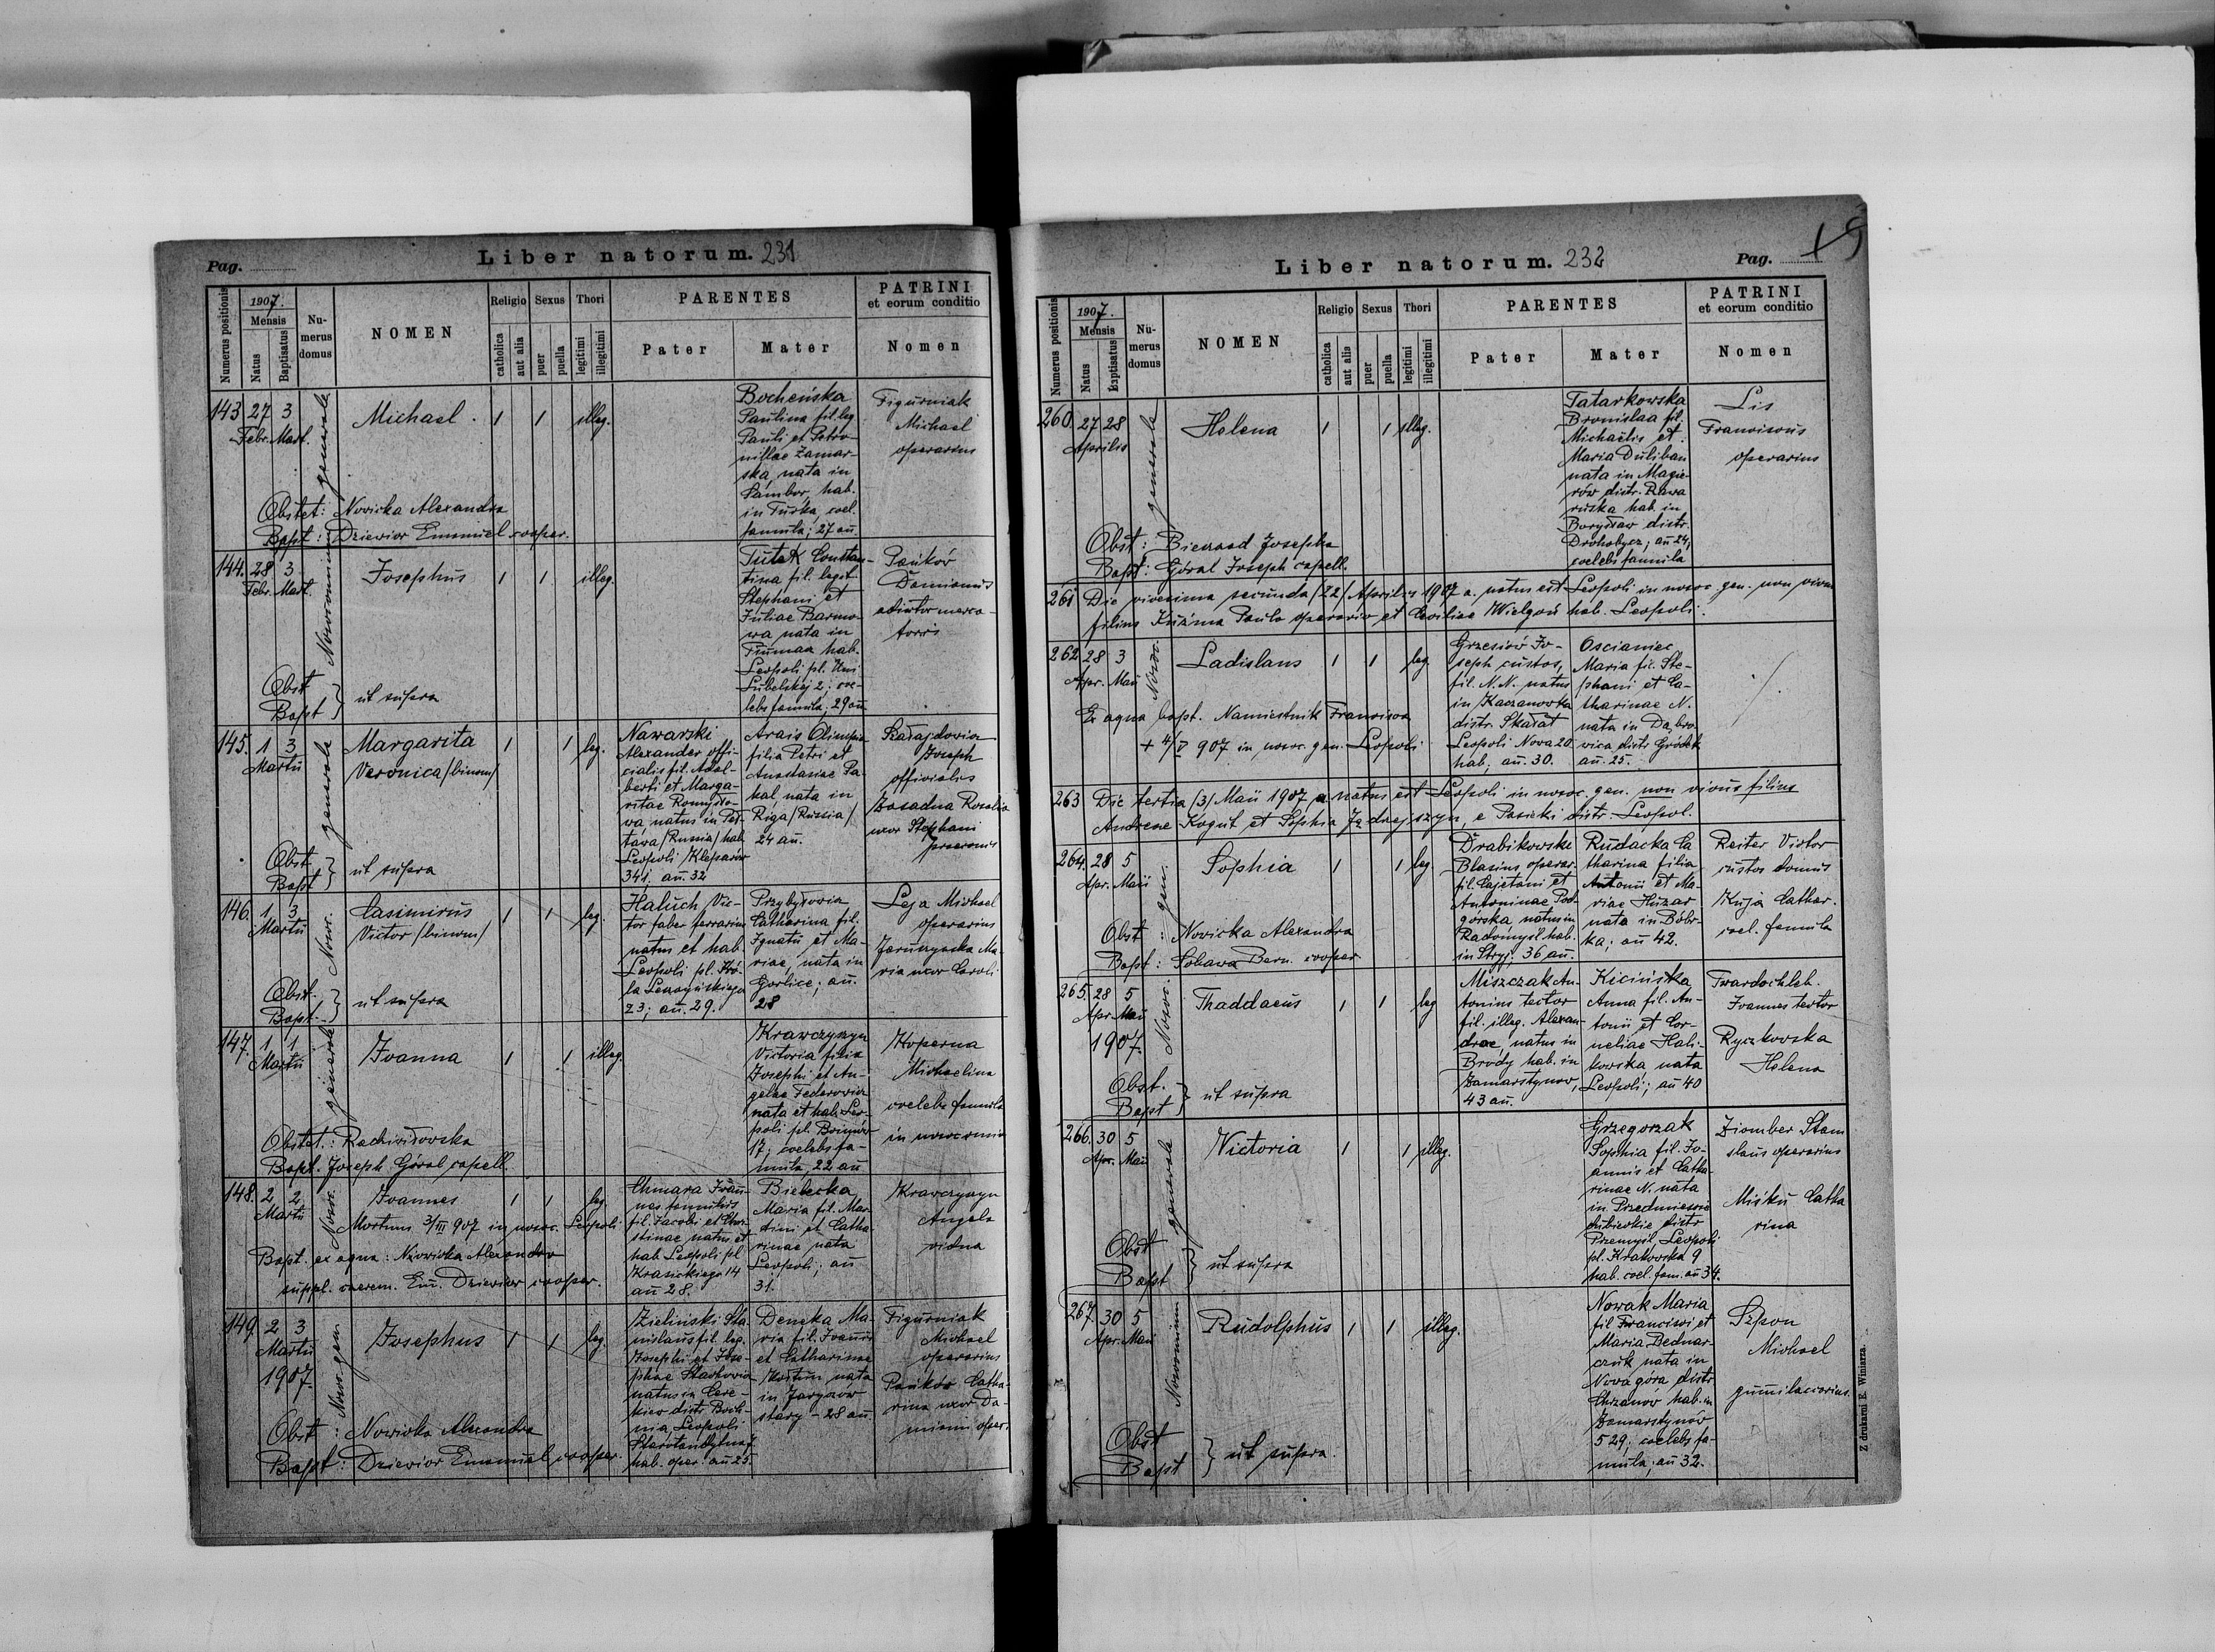 Pag.
Liber natorum. 231
Numerus positionis
1907.
Mensis
Natus
Baptisatus
Nu-
merus
domus
NOMEN
Religio
catholica
aut alia
Sexus
puer
puella
Thori
legitimi
illegitimi
PARENTES
Pater
Mater
PATRINI
et eorum conditio
Nomen
143 27 3
Febr. Mart.
generale
Michael
1 1 illeg.
Bocheńska
Paulina fil. leg.
Pauli et Petro-
nillae Zamar-
ska, nata in
Sambor, hab.
in Turka, coel.
famula; 27 an.
Figurniak
Michael
operarius
Obstet: Nowicka Alexandra
Bapt: Dziewior Emanuel cooper.
144. 28 3
Febr. Mart.
Josephus
1 1 illeg.
Tutak Constan-
tina fil. legit.
Stephani et
Juliae
nata in
hab.
Leopoli pl. Uni
Lubelskiej 2; coe-
lebs famula; 29 an
Pańków
Damianus
Obst
Bapt } ut supra
145. 1 3
Martii
generale
Margarita
Veronica /binom/
1 1 leg.
Nawarski
Alexander offi-
cialis fil. Adal-
berti et Marga-
ritae
natus in
/Russia/ hab
Leopoli /Kleparów
341. an. 32
Arais Olimpia
filia Petri et
Anastasiae
nata in
Riga /Russia/
24 an.
Joseph
officialis
Zasadna Rosalia
uxor Stephani
Obst
Bapt } ut supra
146. 1 3
Martii
Noso.
Casimirus
Victor /binom/
1 1 leg.
Haluch Vic-
tor faber ferrarius
natus et hab.
Leopoli pl. Kró-
la Leszczyńskiego
23; an. 29.
Przybyłowicz
Catharina fil.
Ignatii et Ma-
riae, nata in
Gorlice; an.
28
Leja Michael
operarius
Ma-
ria uxor Caroli
Obst.
Bapt. } ut supra
147. 1 1
Martii
generale
Joanna
1 1 illeg.
Krawczyszyn
Victoria filia
Josephi et An-
gelae Federowicz
nata et hab. Leo-
poli pl.
17; coelebs fa-
mula, 22 an
Koperna
Michaelina
coelebs famula
in nosocomio
Obstet.: Rachwiłowska
Bapt. Joseph Góral capell.
148. 2 2
Martii
Noso.
Joannes
1 1 leg.
Mortuus 3/III 907 in nosoc. Leopoli
Chmara Joan-
nes famulus
fil. Jacobi et Chri-
stinae natus et
hab. Leopoli pl
Krasickiego 14
an 28.
Bielecka
Maria fil. Mar-
tini et Catha-
rinae nata
Leopoli; an
31.
Krawczyszyn
Angela
vidua
Bapt. ex aqua: Nowicka Alexandra
suppl. caerem. Em. Dziewior cooper.
149. 2 3
Martii
1907.
Noso. gen.
Josephus
1 1 leg.
Zieliński Sta-
nislaus fil. leg.
Josephi et Jose-
phae Stachowicz
natus in Cere-
kiew distr. Boch-
nia, Leopoli
hab. oper. an 25.
Deneka Ma-
ria fil. Joannis
et Catharinae
nata
in Jaryczów
stary - 28 an.
Figurniak
Michael
operarius
Pańków Catha-
rina uxor Da-
miani oper.
Obst: Nowicka Alexandra
Bapt: Dziewior Emanuel cooper.
Liber natorum. 232
Pag.
Numerus positionis
1907.
Mensis
Natus
Baptisatus
Nu-
merus
domus
NOMEN
Religio
catholica
aut alia
Sexus
puer
puella
Thori
legitimi
illegitimi
PARENTES
Pater
Mater
PATRINI
et eorum conditio
Nomen
260. 27 28
Aprilis
generale
Helena
1 1 illeg.
Tatarkowska
Bronislaa fil.
Michaëlis et
Maria Duliban
nata in Magie-
rów distr. Rawa
ruska hab. in
Borysław distr.
Drohobycz; an 24,
coelebs famula
Lis
Franciscus
operarius
Obst: Bieniasd Josepha
Bapt: Góral Joseph capell.
261 Die vicesima secunda /22/ Aprilis 1907 a. natus est Leopoli in nosoc. gen. non vivus
filius Kuźma Paulo operario et Ceciliae Wielgosz hab. Leopoli.
262 28 3
Apr. Maii
Nosoc.
Ladislaus
1 1 leg
Grzesiów Jo-
seph custos,
fil. N. N. natus
in Kaczanówka
distr. Skałat
Leopoli Nowa 20
hab; an. 30.
Oscianiec
Maria fil. Ste-
phani et Ca-
tharinae N.
nata in Dąbro-
wica distr Gródek
an. 25.
Ex aqua bapt. Namiestnik Francisca
+ 4/V 907 in nosoc. gen. Leopoli
263 Die tertia /3/ Maii 1907 a natus est Leopoli in nosoc. gen. non vivus filius
Andreae Kogut et Sophia Jędrzejszyn, e Pasieki distr. Leopol.
264. 28 5
Apr. Maii
gen.
Sophia
1 1 leg
Drabikowski
Blasius, operar.
fil. Cajetani et
Antoninae Pod-
górska natus in
Radomyśl hab.
in Stryj. 36 an.
Rudacka Ca
tharina filia
Antonii et Ma-
riae Huzar
nata in Bóbr-
ka; an 42.
Reiter Victor
custos domus
Kuja Cathar.
coel. famula
Obst: Nowicka Alexandra
Bapt: Sobawa Bern. cooper
265. 28 5
Apr. Maii
1907.
Nosoc.
Thaddaeus
1 1 leg
Miszczak An-
tonius tector
fil. illeg. Alexan-
drae, natus in
Brody hab. in
Zamarstynow,
43 an.
Kicińska
Anna fil. An-
tonii et Cor-
neliae Hali-
kowska, nata
Leopoli; an 40
Twardochleb
Joannes tector
Ryczkowska
Helena
Obst.
Bapt } ut supra
266. 30 5
Apr. Maii
generale
Victoria
1 1 illeg.
Grzegorzak
Sophia fil. Jo-
annis et Catha-
rinae N. nata
in Przedmieście
dubieckie distr
Przemyśl, Leopoli
pl. Krakowska 9
hab. coel. fam. an 34.
Ziomber Stani
slaus operarius
Miśku Catha
rina
Obst
Bapt } ut supra
267. 30 5
Apr. Maii
Nosocomium
Rudolphus
1 1 illeg.
Nowak Maria
fil Francisci et
Maria Bednar-
czuk nata in
Nova góra distr
Chrzanów hab. in
Zamarstynów
529; coelebs fa-
mula; an 32.
Szpon
Michael
Obst
Bapt } ut supra.
Z drukarni E. Winiarza.